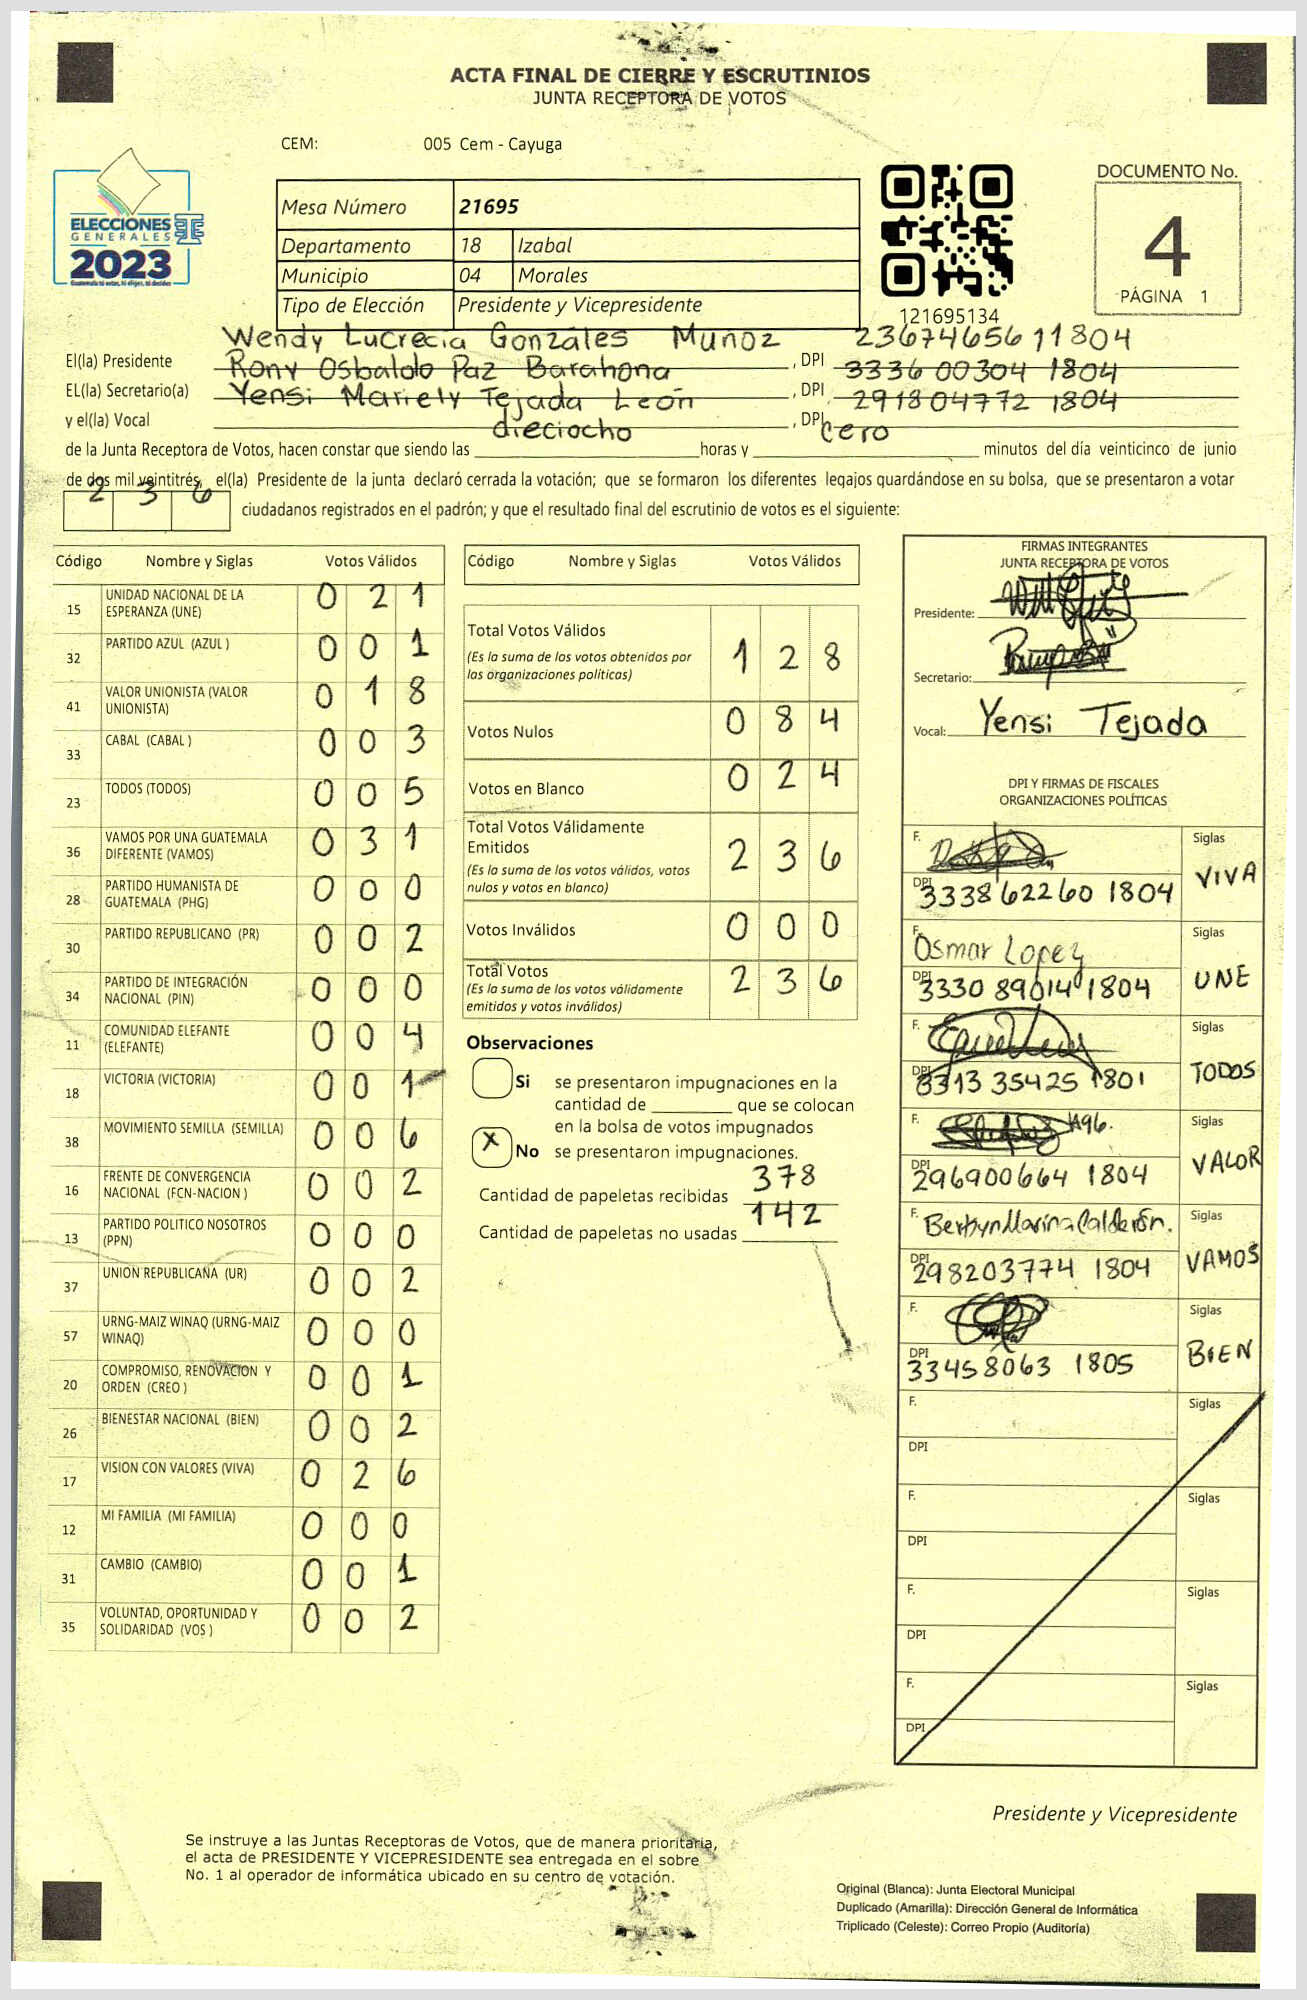 ACTA FINAL DE CIERRE Y ESCRUTINIOS
JUNTA RECEPTORA DE VOTOS
CEM: 005 Cem - Cayuga
ELECCIONES
GENERALES
2023
Guatemala tú votas, tú eliges, tú decides
Mesa Número 21695
Departamento 18 Izabal
Municipio 04 Morales
Tipo de Elección Presidente y Vicepresidente
121695134
DOCUMENTO No.
4
PÁGINA 1
Wendy Lucrecia Gonzáles Muñoz 23674656 11804
El(la) Presidente Rony Osbaldo Paz Barahona , DPI 3336 00304 1804
EL(la) Secretario(a) Yensi Mariely Tejada León , DPI 291804772 1804
y el(la) Vocal , DPI
de la Junta Receptora de Votos, hacen constar que siendo las dieciocho horas y cero minutos del día veinticinco de junio
de dos mil veintitrés, el(la) Presidente de la junta declaró cerrada la votación; que se formaron los diferentes legajos guardándose en su bolsa, que se presentaron a votar
2 3 6 ciudadanos registrados en el padrón; y que el resultado final del escrutinio de votos es el siguiente:
Código Nombre y Siglas Votos Válidos
15 UNIDAD NACIONAL DE LA ESPERANZA (UNE) 0 2 1
32 PARTIDO AZUL (AZUL ) 0 0 1
41 VALOR UNIONISTA (VALOR UNIONISTA) 0 1 8
33 CABAL (CABAL ) 0 0 3
23 TODOS (TODOS) 0 0 5
36 VAMOS POR UNA GUATEMALA DIFERENTE (VAMOS) 0 3 1
28 PARTIDO HUMANISTA DE GUATEMALA (PHG) 0 0 0
30 PARTIDO REPUBLICANO (PR) 0 0 2
34 PARTIDO DE INTEGRACIÓN NACIONAL (PIN) 0 0 0
11 COMUNIDAD ELEFANTE (ELEFANTE) 0 0 4
18 VICTORIA (VICTORIA) 0 0 1
38 MOVIMIENTO SEMILLA (SEMILLA) 0 0 6
16 FRENTE DE CONVERGENCIA NACIONAL (FCN-NACION ) 0 0 2
13 PARTIDO POLITICO NOSOTROS (PPN) 0 0 0
37 UNION REPUBLICANA (UR) 0 0 2
57 URNG-MAIZ WINAQ (URNG-MAIZ WINAQ) 0 0 0
20 COMPROMISO, RENOVACION Y ORDEN (CREO ) 0 0 1
26 BIENESTAR NACIONAL (BIEN) 0 0 2
17 VISION CON VALORES (VIVA) 0 2 6
12 MI FAMILIA (MI FAMILIA) 0 0 0
31 CAMBIO (CAMBIO) 0 0 1
35 VOLUNTAD, OPORTUNIDAD Y SOLIDARIDAD (VOS ) 0 0 2
Código Nombre y Siglas Votos Válidos
Total Votos Válidos 1 2 8
(Es la suma de los votos obtenidos por
las organizaciones políticas)
Votos Nulos 0 8 4
Votos en Blanco 0 2 4
Total Votos Válidamente
Emitidos 2 3 6
(Es la suma de los votos válidos, votos
nulos y votos en blanco)
Votos Inválidos 0 0 0
Total Votos 2 3 6
(Es la suma de los votos válidamente
emitidos y votos inválidos)
Observaciones
Si se presentaron impugnaciones en la
cantidad de que se colocan
en la bolsa de votos impugnados
X No se presentaron impugnaciones.
Cantidad de papeletas recibidas 378
Cantidad de papeletas no usadas 142
FIRMAS INTEGRANTES
JUNTA RECEPTORA DE VOTOS
Presidente:
Secretario:
Vocal: Yensi Tejada
DPI Y FIRMAS DE FISCALES
ORGANIZACIONES POLÍTICAS
F. Siglas
DPI 3338 62260 1804 VIVA
F. Osmar Lopez Siglas
DPI 3330 89014 1804 UNE
F. Siglas
DPI 3313 35425 1801 TODOS
F. Siglas
DPI 296900664 1804 VALOR
F. Berlyn Marina Calderón. Siglas
DPI 298203774 1804 VAMOS
F. Siglas
DPI 33458063 1805 BIEN
F. Siglas
DPI
F. Siglas
DPI
F. Siglas
DPI
F. Siglas
DPI
Presidente y Vicepresidente
Se instruye a las Juntas Receptoras de Votos, que de manera prioritaria,
el acta de PRESIDENTE Y VICEPRESIDENTE sea entregada en el sobre
No. 1 al operador de informática ubicado en su centro de votación.
Original (Blanca): Junta Electoral Municipal
Duplicado (Amarilla): Dirección General de Informática
Triplicado (Celeste): Correo Propio (Auditoría)